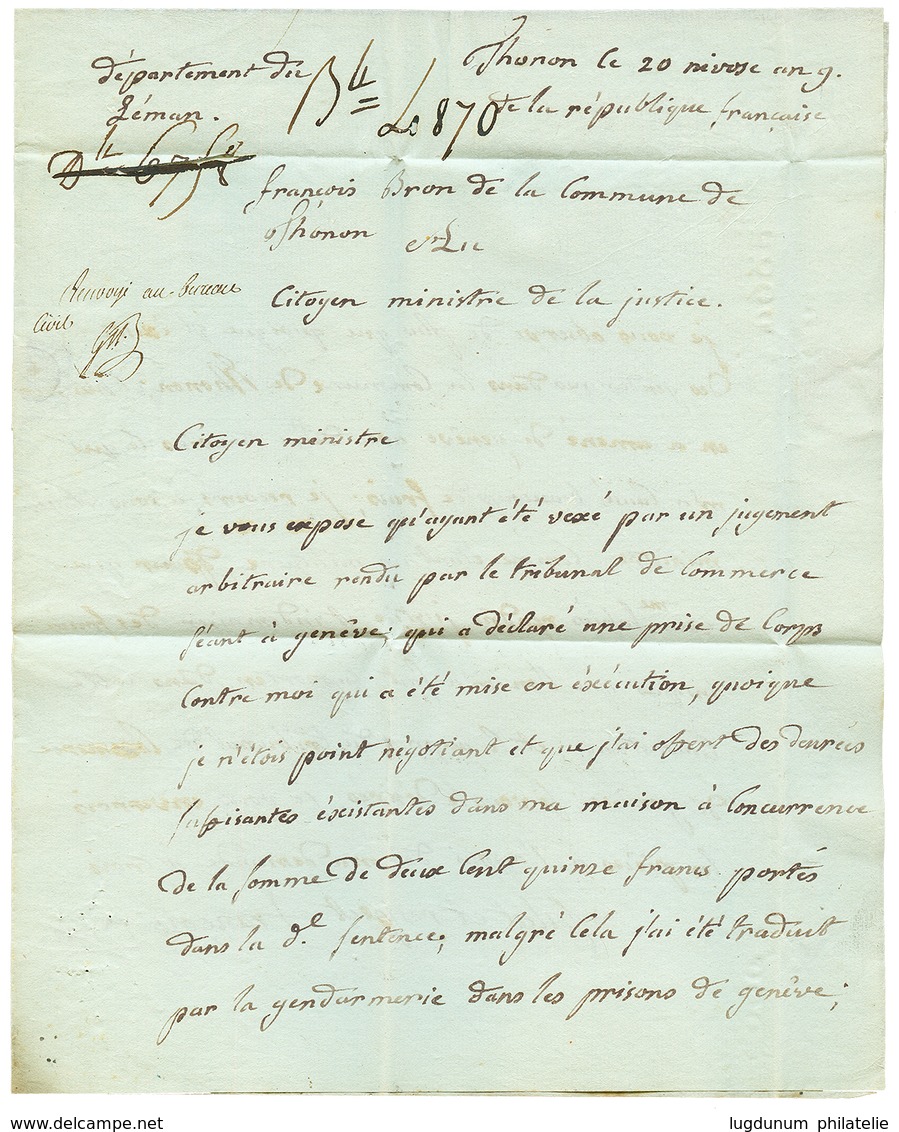 département du
Léman.
Thonon le 20 nivose an 9.
de la république française
Bu L 870
françois Bron de la Commune de
Thonon
Citoyen ministre de la justice.
Renvoyé au bureau
Civil
Citoyen ministre
je vous expose qu'ayant été vexé par un jugement
arbitraire rendu par le tribunal de Commerce
séant à genêve; qui a déclaré une prise de Corps
Contre moi qui a été mise en éxécution, quoique
je n'étois point négotiant et que j'ai offert des denrées
suffisantes éxistantes dans ma maison à Concurrence
de la somme de deux Cent quinze francs portés
dans la d.e sentence; malgré Cela j'ai été traduit
par la gendarmerie dans les prisons de genêve;
www.delcampe.net
lugdunum philatelie